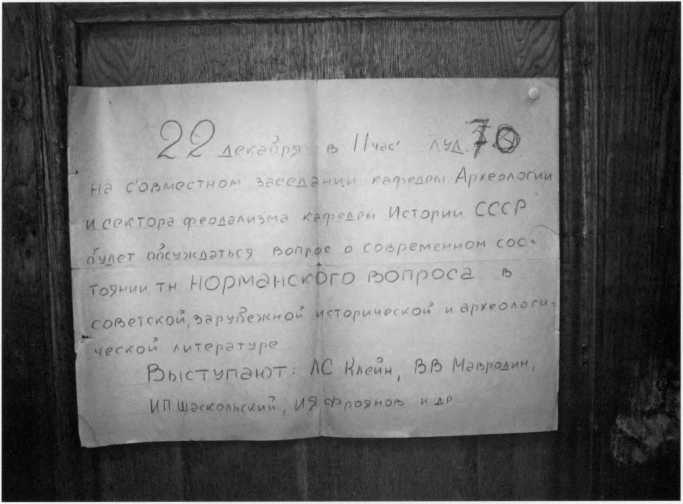 22 декабря в 11 час. ауд. 70
на совместном заседании кафедры Археологии
и сектора феодализма кафедры Истории СССР
будет обсуждаться вопрос о современном сос-
тоянии т.н НОРМАНСКОГО ВОПРОСА в
советской, зарубежной исторической и археологи-
ческой литературе
Выступают: ЛС Клейн, ВВ Мавродин,
ИП.Шаскольский, ИЯ Фроянов и др